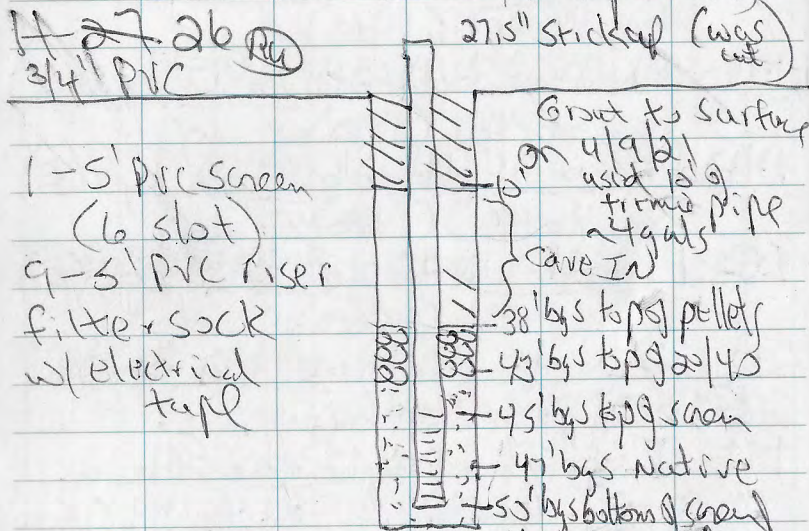 26 RW
3/4" PVC
27.5" Stickup (was cut)
1-5' PVC screen
(6 slot)
9-5' PVC riser
filter sock
w/ electrical
tape
Grout to surface
on 4/9/21
used 10' of
tremie pipe
~4 gals
10'
Cave IN
38' bgs top of pellets
43' bgs top of 20/40
45' bgs top of screen
47' bgs Native
50' bgs bottom of screen